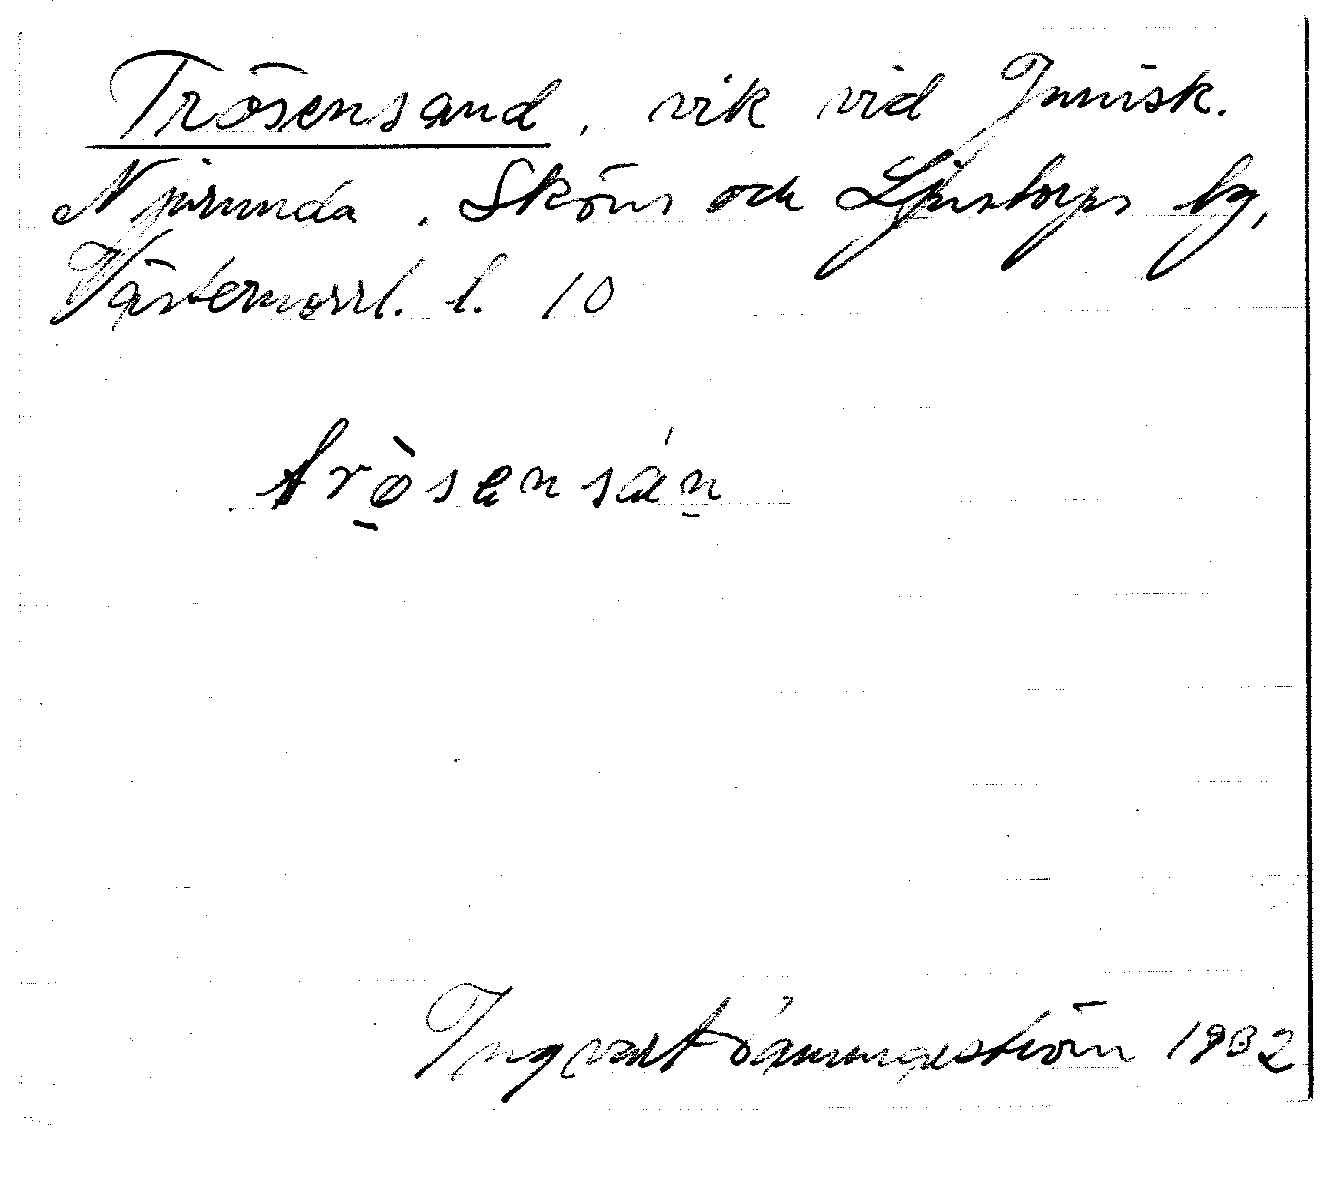 Trösensand, vik vid Junisk.
Njurunda, Sköns och Ljustorps tg,
Västernorrl. l. 10
trö̀sensán
Ingvar 1932